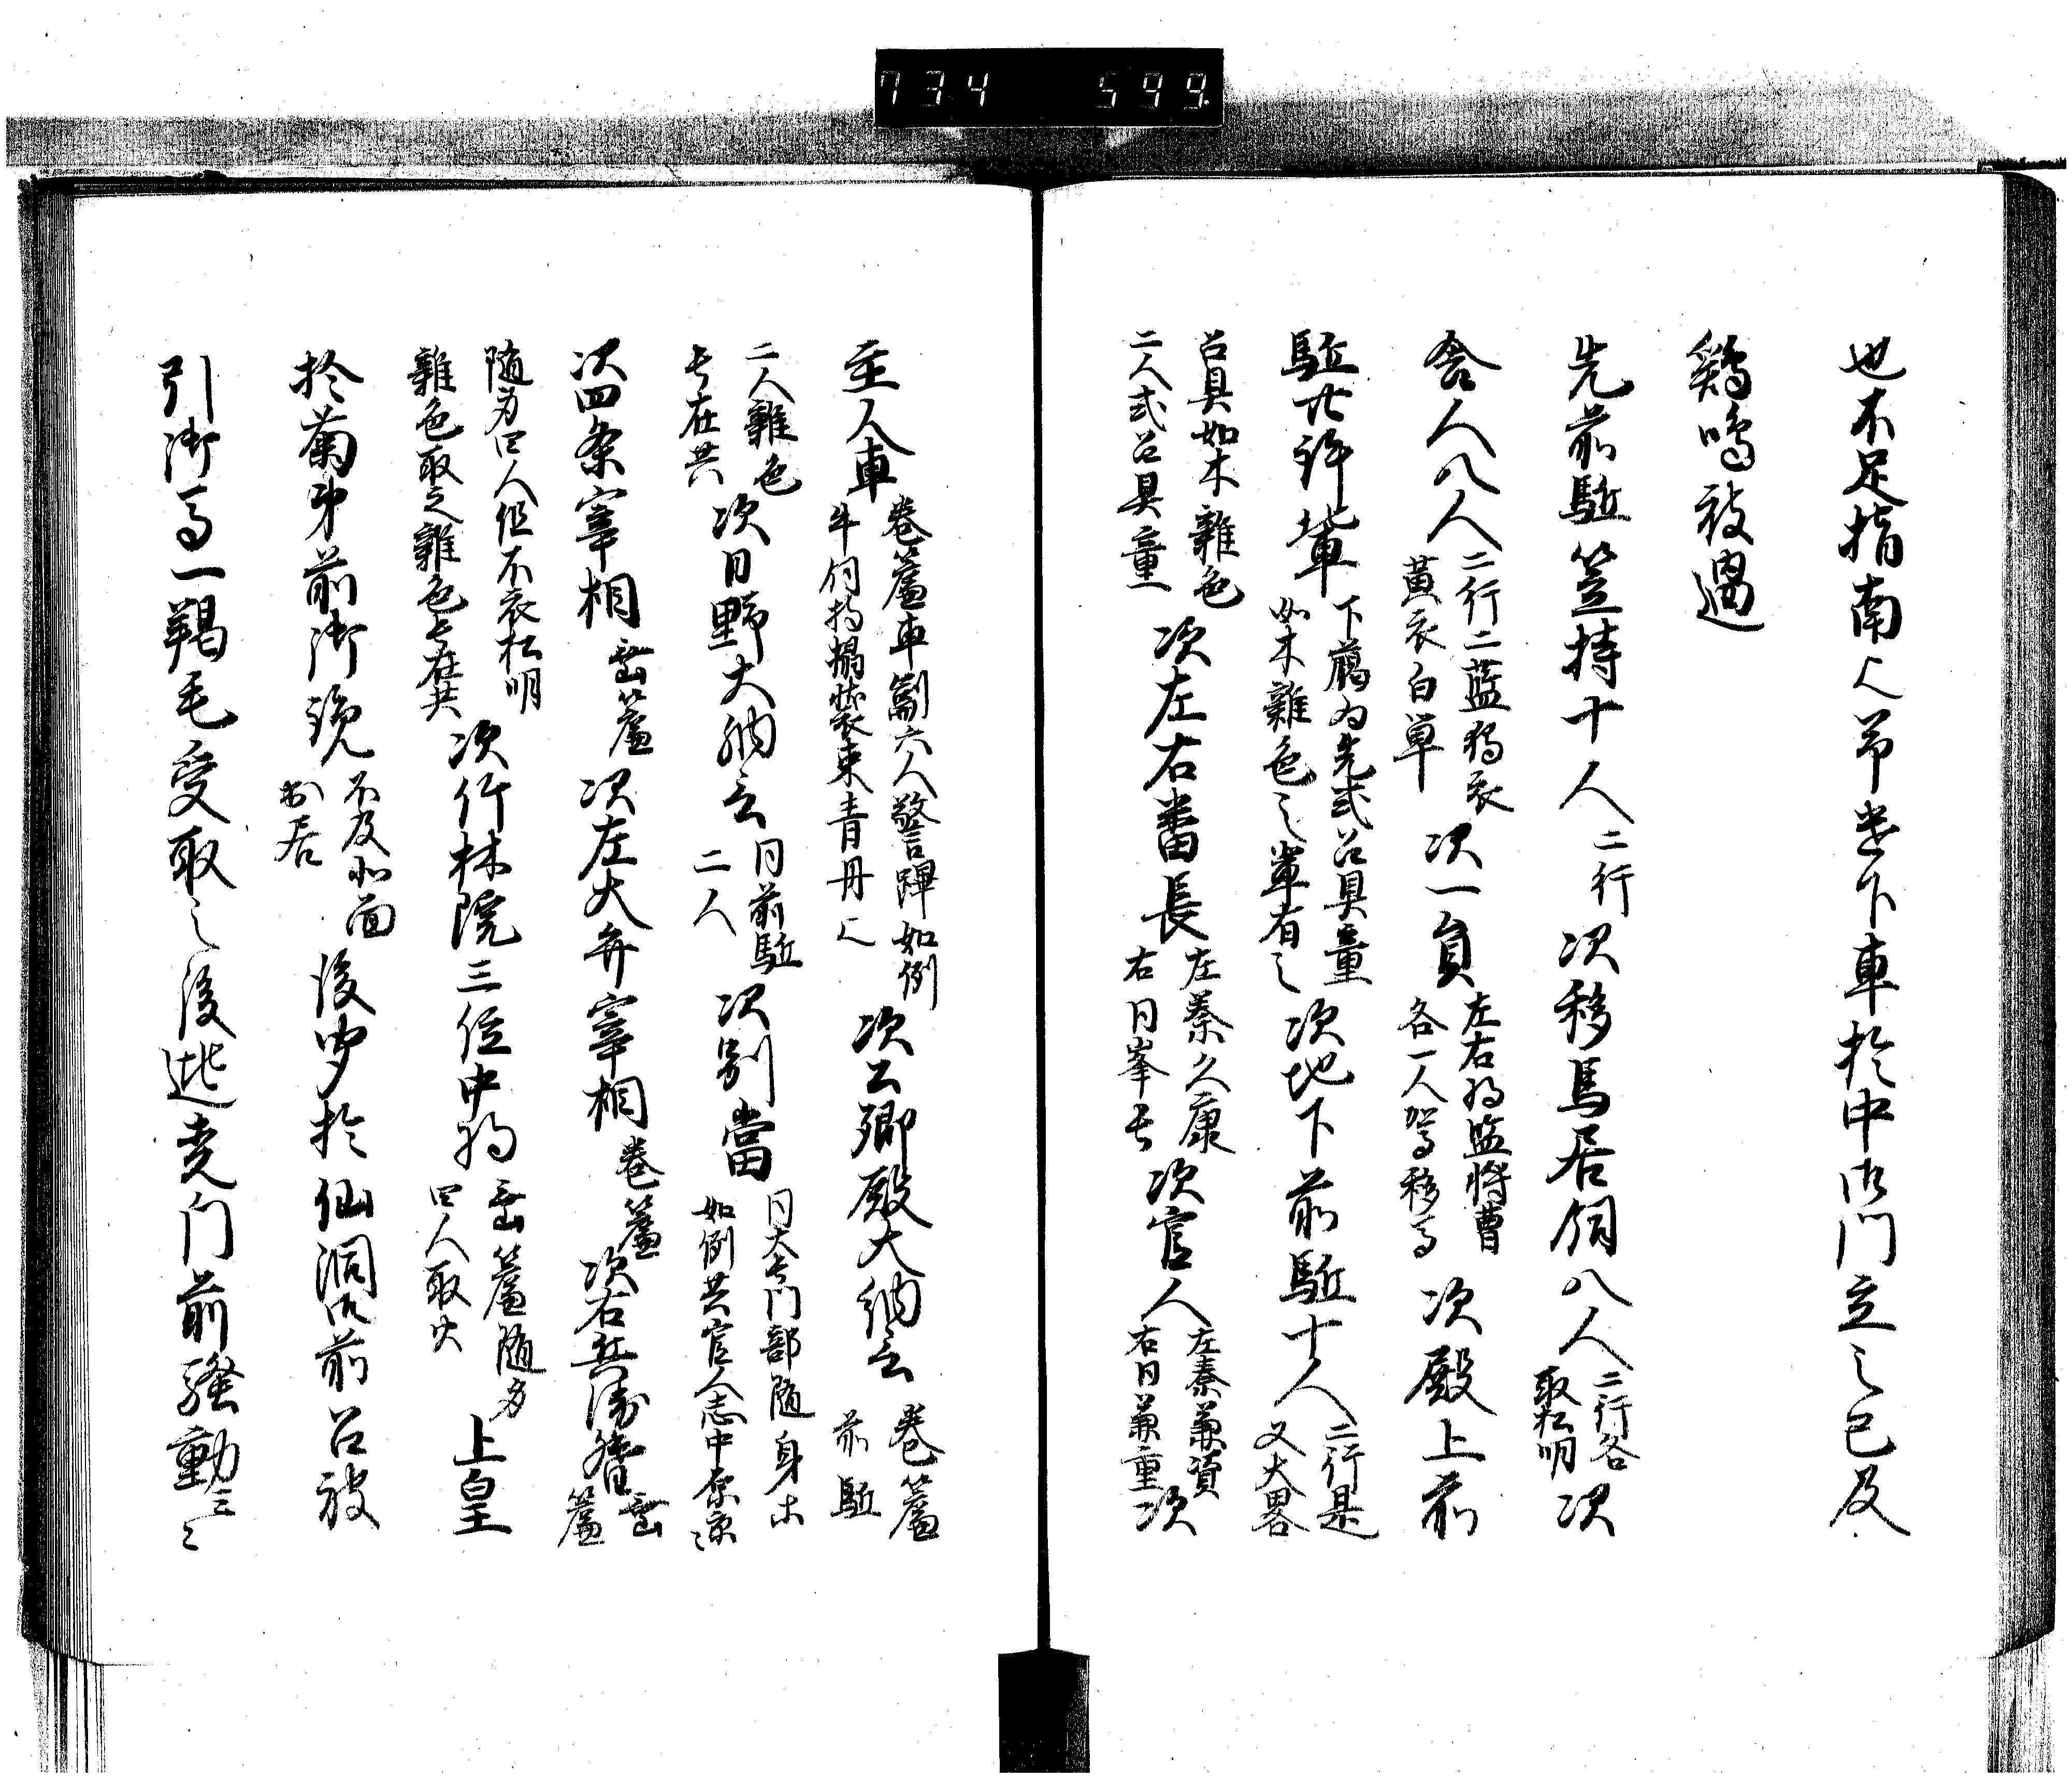 734 599.
也不足指南
下車於中御門立之已及
鶏鳴被過
先前駈笠持十人二行次移馬居飼八人二行各取松明次
舎人八人二行二藍狩衣黄衣白単次一員左右将監将曹各一人駕移馬次殿上前
駈廿許輩下臈為先式召具童如木雑色之輩有之次地下前駈十人二行是又大畧
召具如木雑色二人式召具童次左右番長左秦久康右同峯長次官人左秦兼資右同兼重次
主人車巻簾車副六人警蹕如例牛飼持榻装束青丹次公卿殿大納言巻簾前駈
二人雑色長在共次日野大納言同前駈二人次別當同大長門部随身木如例共官人志中原
次四条宰相垂簾次左大弁宰相巻簾次右兵衛督垂簾
随身四人但不衣松明雑色取之雑色長在共次竹林院三位中将垂簾随身四人取火上皇
於菊第前御覧不及北面出居後聞於仙洞御前召被
引御馬一羯毛受取之後逃走門前騒動云々